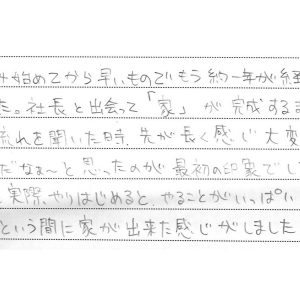 み始めてから早いものでもう約一年が経
た。社長と出会って「家」が完成するま
流れを聞いた時、先が長く感じ大変
だなぁ〜と思ったのが最初の印象でし
実際、やりはじめると、やることがいっぱい
という間に家が出来た感じがしました